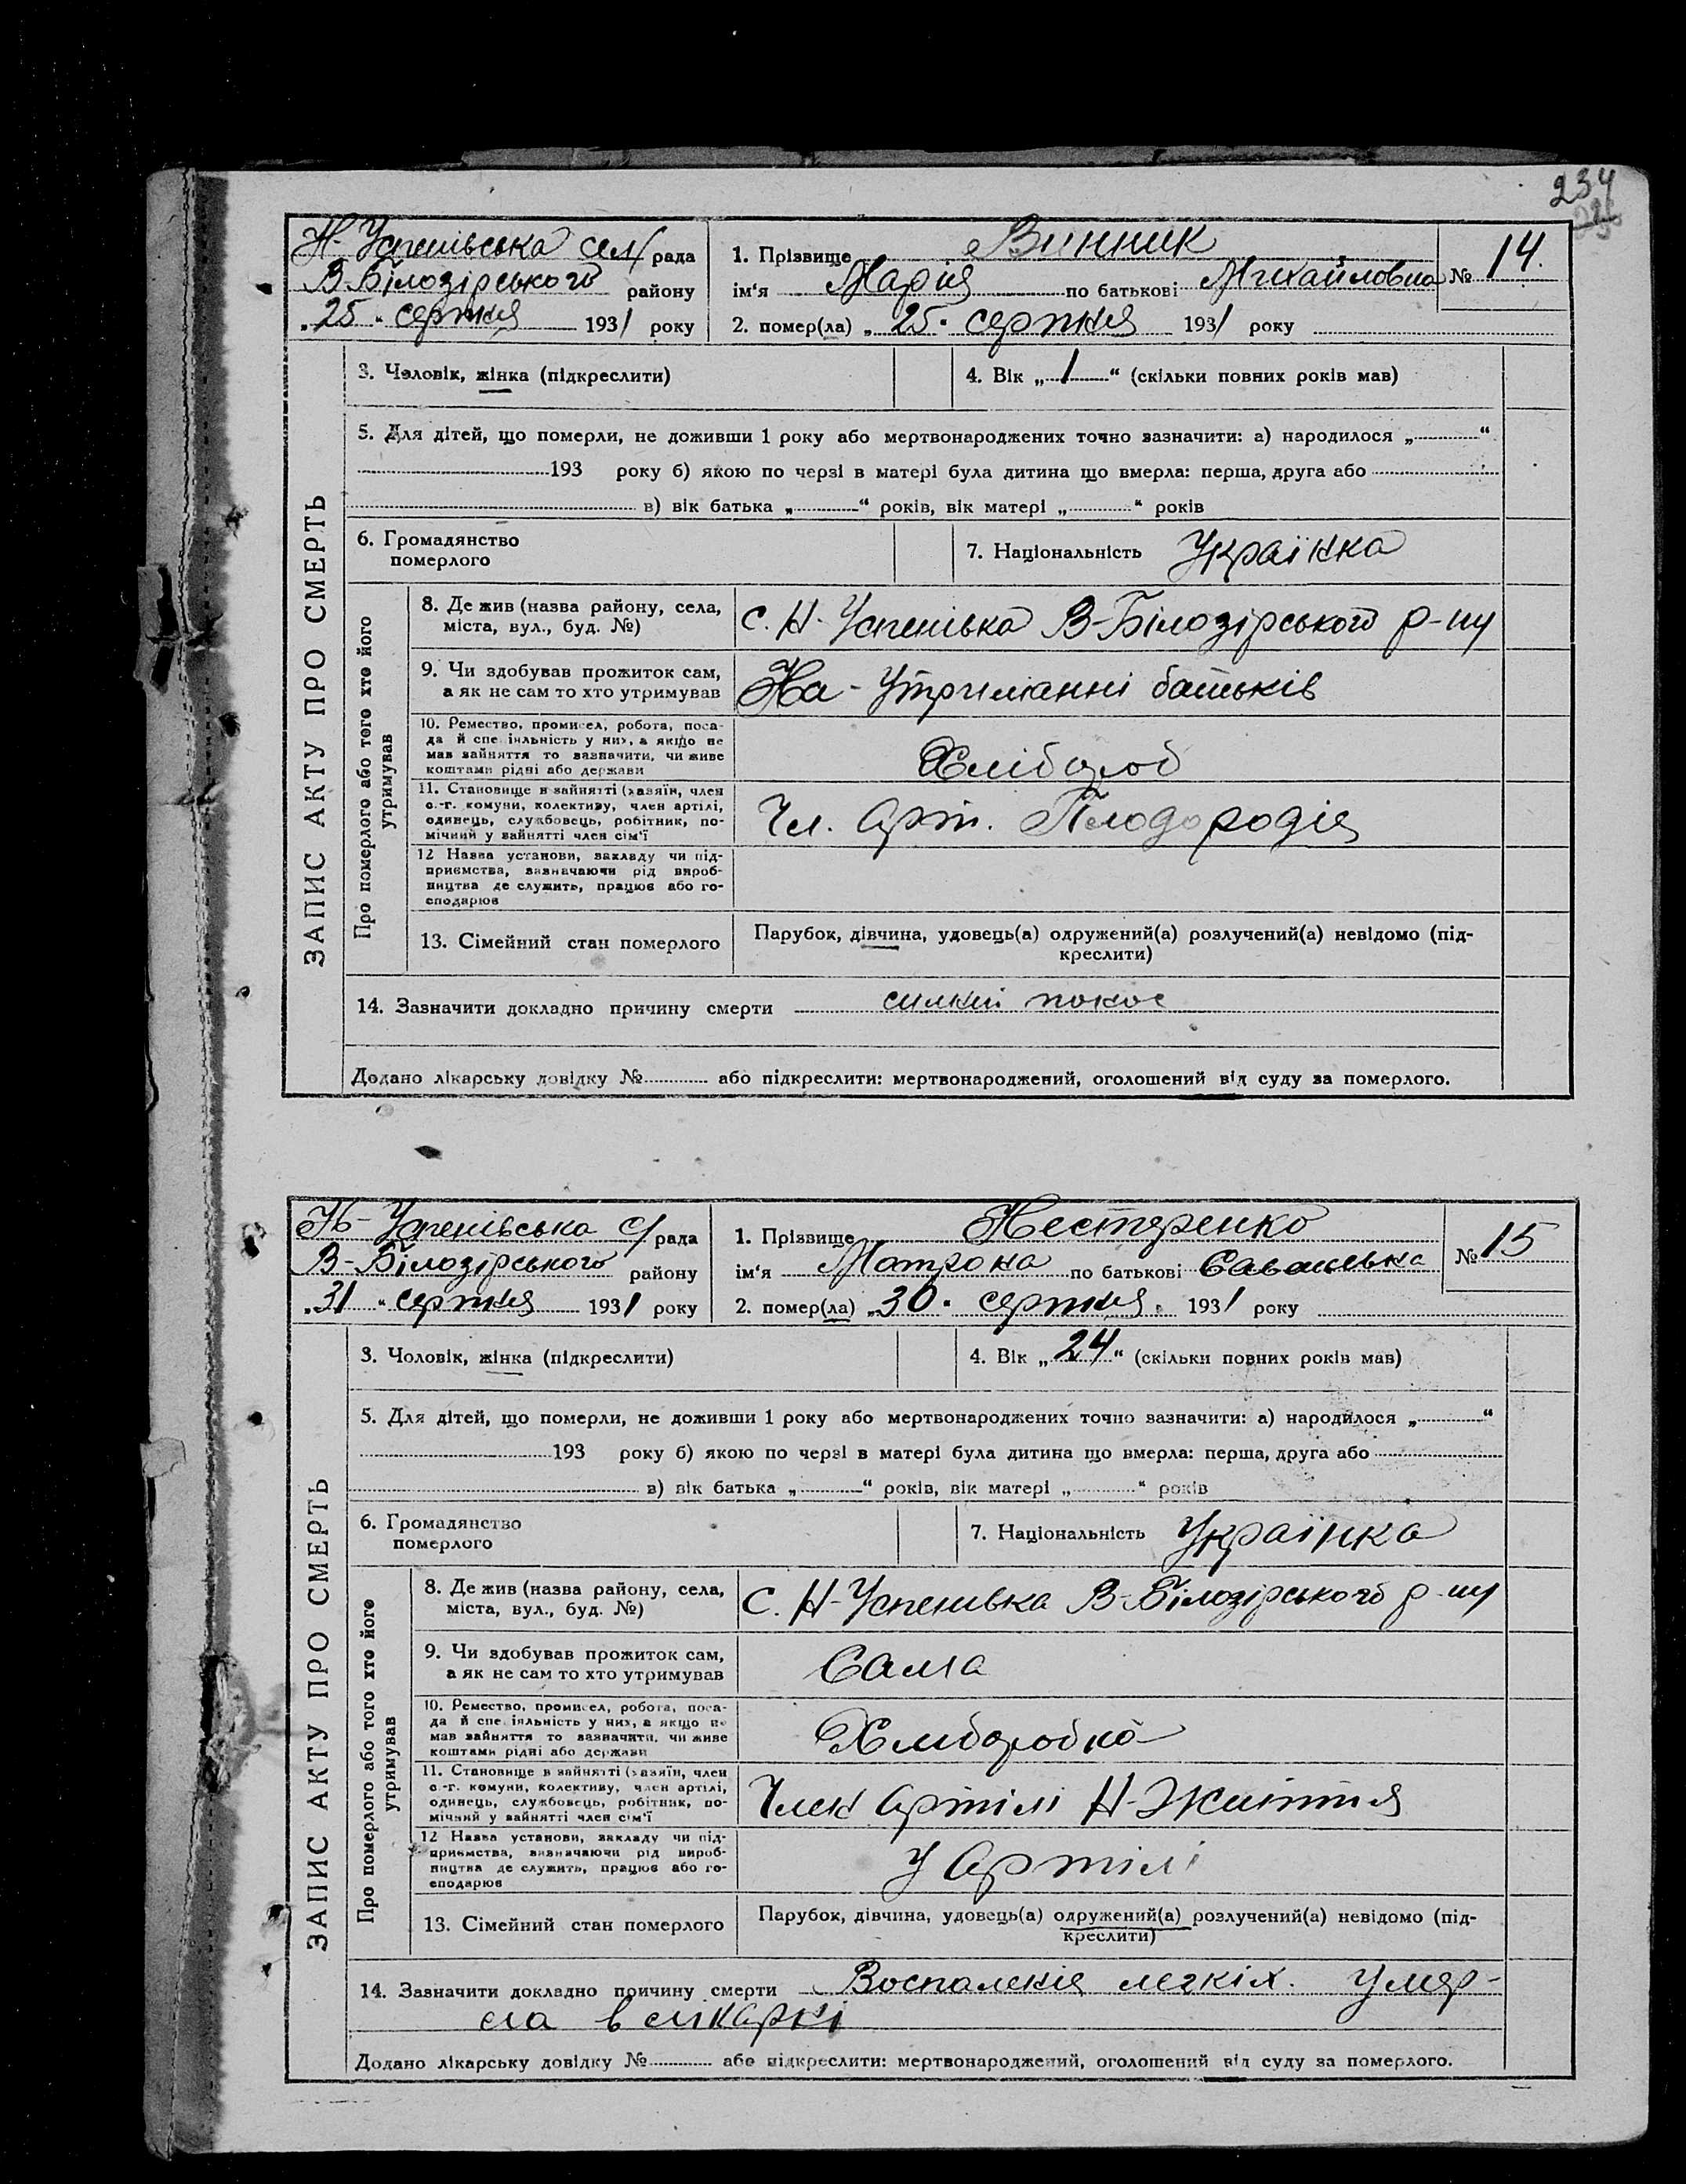 234
Н-Успенівська сел/рада
В-Білозірського району
„25“ серпня 1931 року
1. Прізвище Винник
ім'я Марія по батькові Михайловна
№ 14.
2. помер(ла) „25“ серпня 1931 року
ЗАПИС АКТУ ПРО СМЕРТЬ
3. Чоловік, жінка (підкреслити)
4. Вік „1“ (скільки повних років мав)
5. Для дітей, що померли, не доживши 1 року або мертвонароджених точно зазначити: а) народилося „ “
193 року б) якою по черзі в матері була дитина що вмерла: перша, друга або
в) вік батька „ “ років, вік матері „ “ років
6. Громадянство
померлого
7. Національність Українка
Про померлого або того хто його
утримував
8. Де жив (назва району, села,
міста, вул., буд. №)
с. Н-Успенівка В-Білозірського р-ну
9. Чи здобував прожиток сам,
а як не сам то хто утримував
На-утриманні батьків
10. Ремество, промисел, робота, поса-
да й спеціяльність у них, а якщо не
мав зайняття то зазначити, чи живе
коштами рідні або держави
Хлібороб
11. Становище в зайнятті (хазяїн, член
с.-г. комуни, колективу, член артілі,
одинець, службовець, робітник, по-
мічний у зайнятті член сім'ї
Чл. Арт. Плодородія
12 Назва установи, закладу чи під-
приємства, зазначаючи рід вироб-
ництва де служить, працює або го-
сподарює
13. Сімейний стан померлого
Парубок, дівчина, удовець(а) одружений(а) розлучений(а) невідомо (під-
креслити)
14. Зазначити докладно причину смерти
Додано лікарську довідку № або підкреслити: мертвонароджений, оголошений від суду за померлого.
Н-Успенівська с/рада
В-Білозірського району
„31“ серпня 1931 року
1. Прізвище Нестеренко
ім'я Мотрона по батькові Савельевна
№ 15
2. помер(ла) „30“ серпня 1931 року
ЗАПИС АКТУ ПРО СМЕРТЬ
3. Чоловік, жінка (підкреслити)
4. Вік „24“ (скільки повних років мав)
5. Для дітей, що померли, не доживши 1 року або мертвонароджених точно зазначити: а) народилося „ “
193 року б) якою по черзі в матері була дитина що вмерла: перша, друга або
в) вік батька „ “ років, вік матері „ “ років
6. Громадянство
померлого
7. Національність Українка
Про померлого або того хто його
утримував
8. Де жив (назва району, села,
міста, вул., буд. №)
с. Н-Успенивка В-Білозірського р-ну
9. Чи здобував прожиток сам,
а як не сам то хто утримував
Сама
10. Ремество, промисел, робота, поса-
да й спеціяльність у них, а якщо не
мав зайняття то зазначити, чи живе
коштами рідні або держави
Хліборобка
11. Становище в зайнятті (хазяїн, член
с.-г. комуни, колективу, член артілі,
одинець, службовець, робітник, по-
мічний у зайнятті член сім'ї
Член Артілі Н-Життя
12 Назва установи, закладу чи під-
приємства, зазначаючи рід вироб-
ництва де служить, працює або го-
сподарює
У Артілі
13. Сімейний стан померлого
Парубок, дівчина, удовець(а) одружений(а) розлучений(а) невідомо (під-
креслити)
14. Зазначити докладно причину смерти Воспаления легкіх. Умер-
ла в лікарні
Додано лікарську довідку № або підкреслити: мертвонароджений, оголошений від суду за померлого.